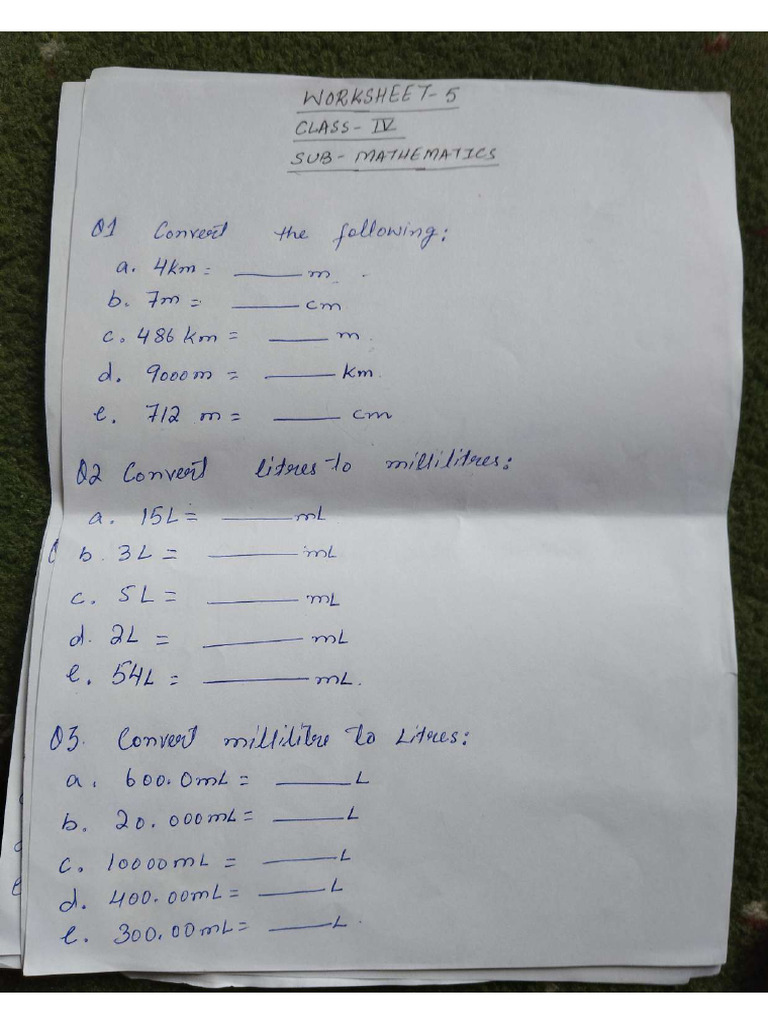 WORKSHEET-5
CLASS-IV
SUB-MATHEMATICS
Q1 Convert the following:
a. 4km = ____ m
b. 7m = ____ cm
c. 486 km = ____ m
d. 9000m = ____ km
e. 712 m = ____ cm
Q2 Convert litres to millilitres:
a. 15L = ____ mL
b. 3L = ____ mL
c. 5L = ____ mL
d. 2L = ____ mL
e. 54L = ____ mL.
Q3. Convert millilitre to Litres:
a. 600.0mL = ____ L
b. 20.000mL = ____ L
c. 10000mL = ____ L
d. 400.00mL = ____ L
e. 300.00mL = ____ L